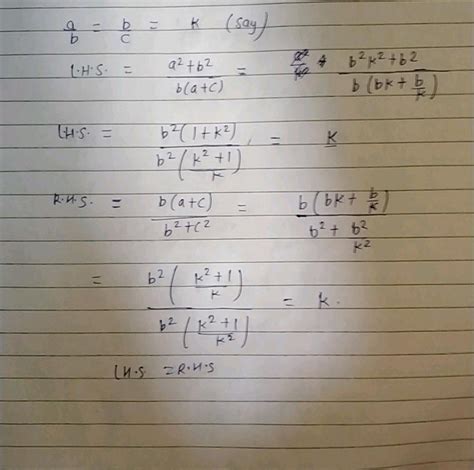 a/b = b/c = k (say)
L.H.S. = (a²+b²)/(b(a+c)) = (b²k²+b²)/(b(bk+b/k))
L.H.S. = (b²(1+k²))/(b²((k²+1)/k)) = k
R.H.S. = (b(a+c))/(b²+c²) = (b(bk+b/k))/(b²+b²/k²)
= (b²((k²+1)/k))/(b²((k²+1)/k²)) = k.
L.H.S = R.H.S